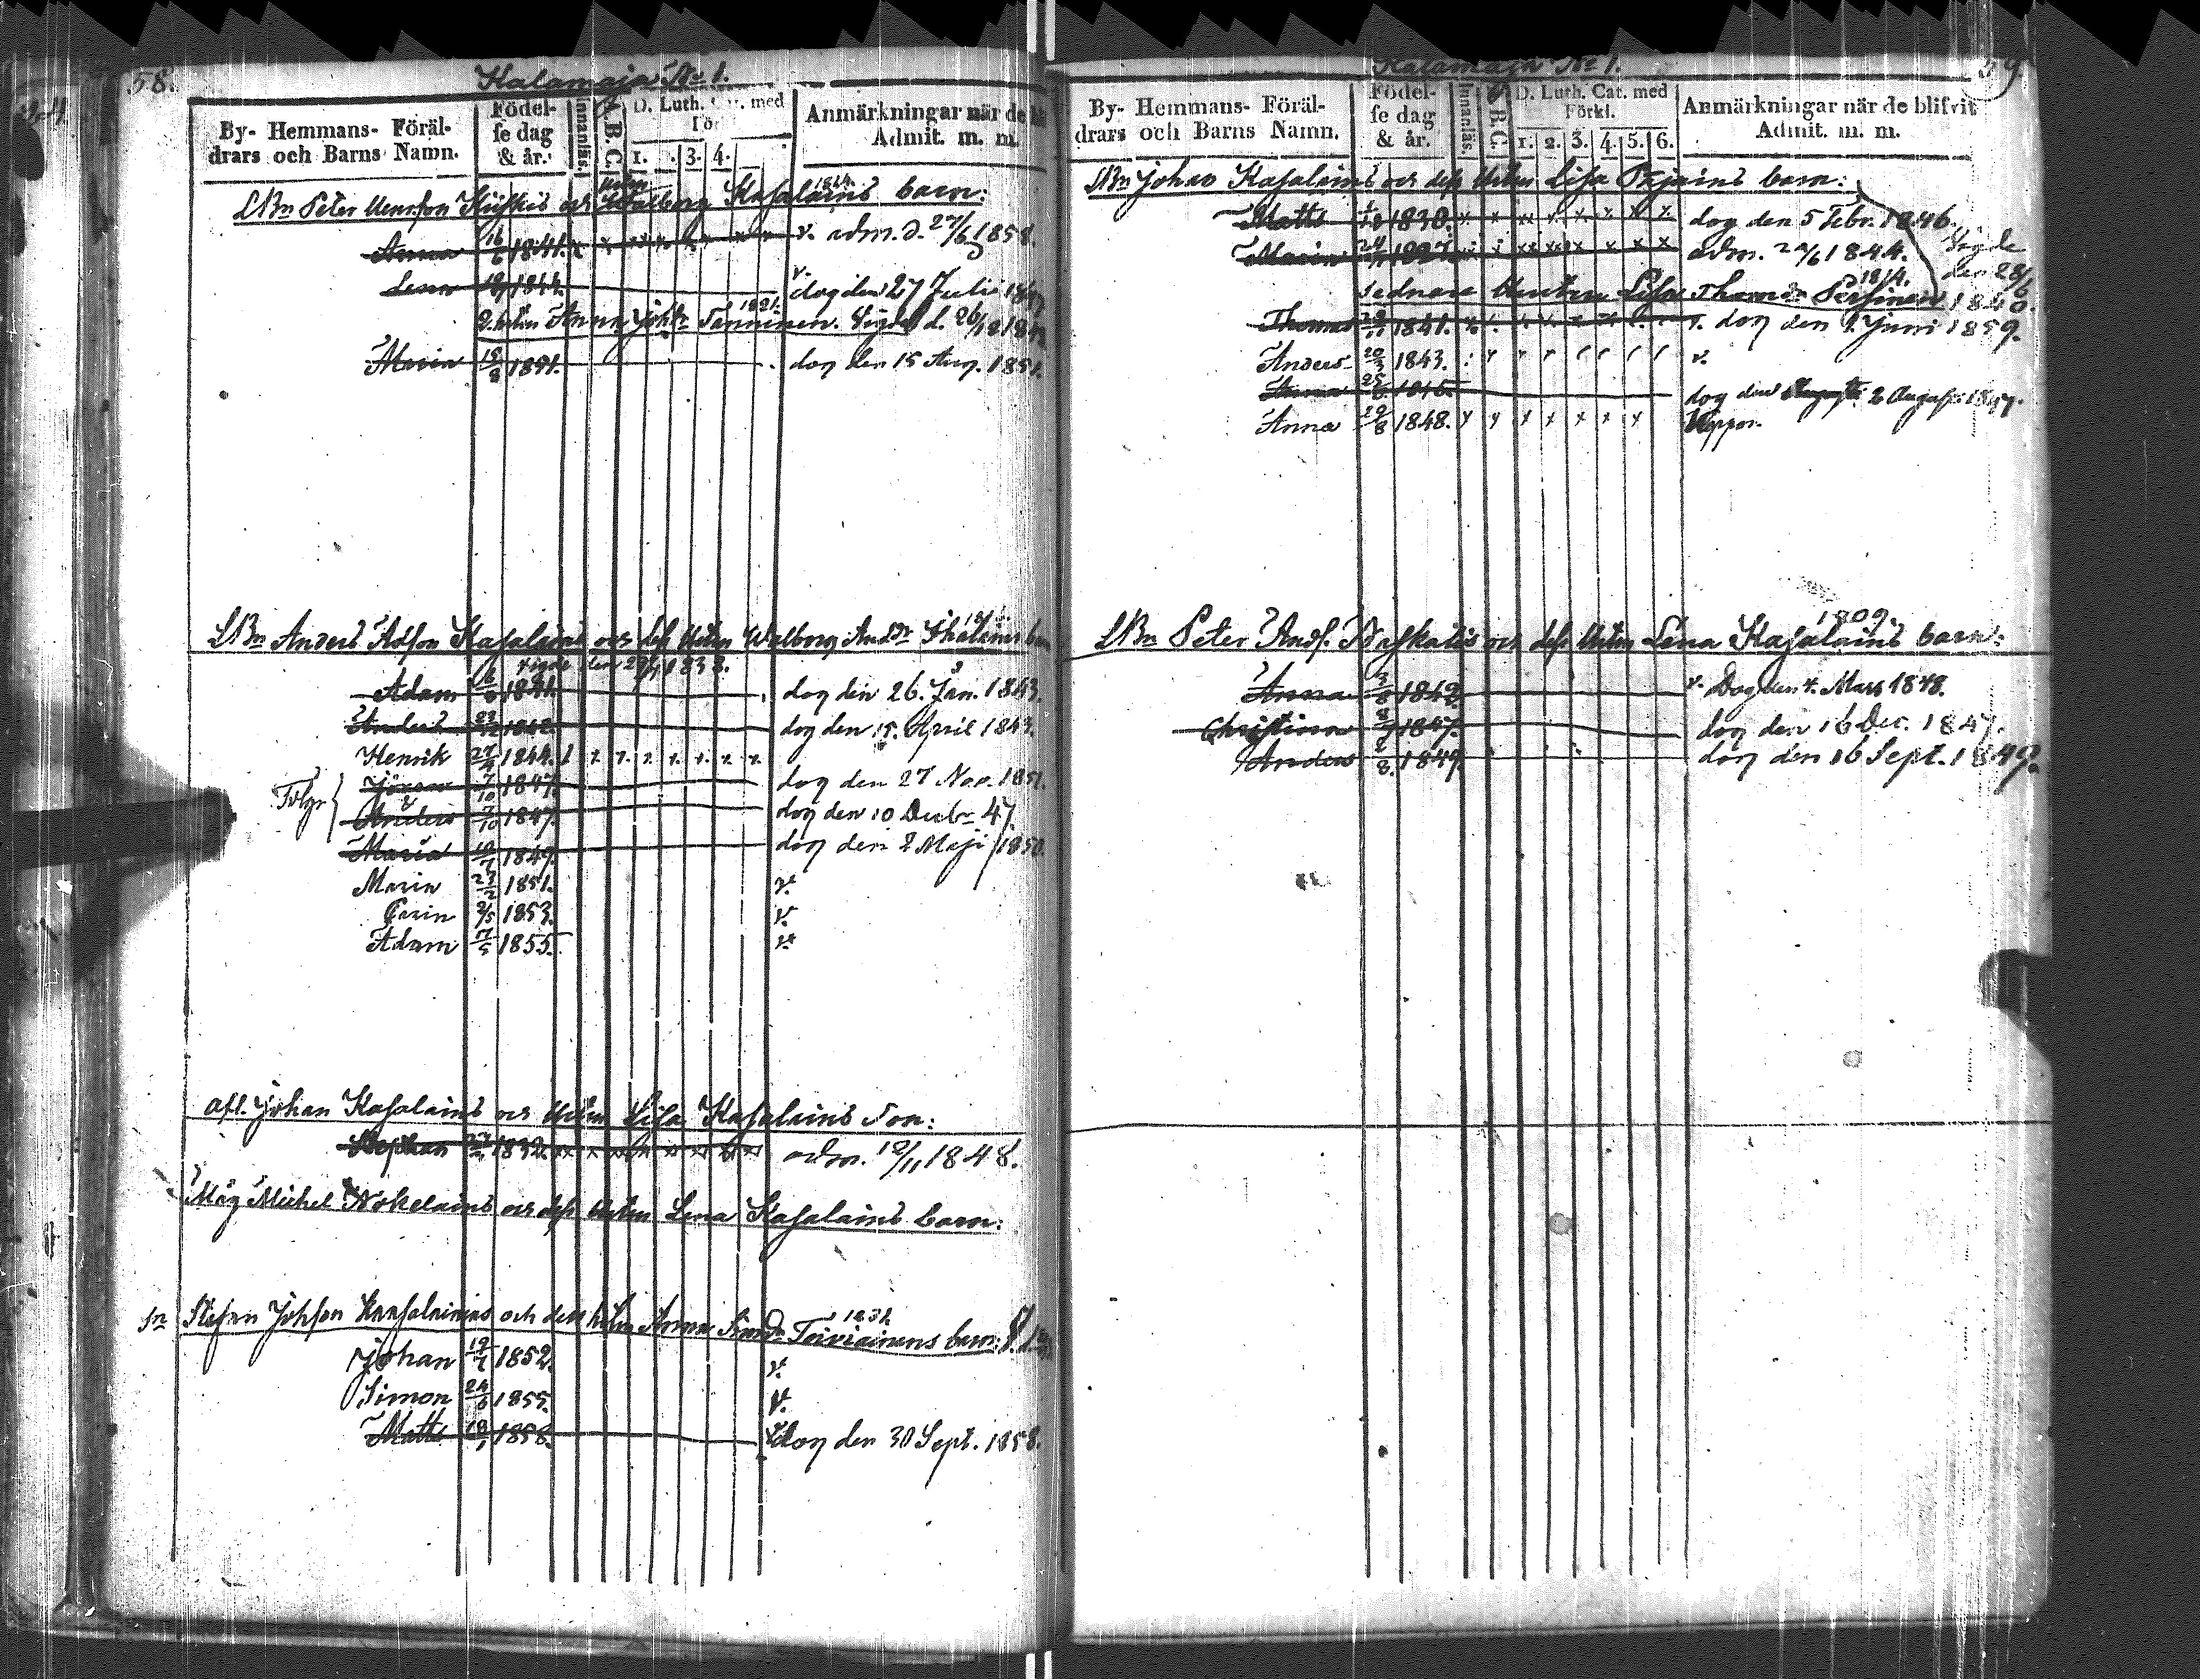 58.
Kalamaja No 1.
By- Hemmans- Föräl-
drars och Barns Namn.
Födel-
se dag
& år.
Innanläs.
A.B.C.
D. Luth. Cat. med
För
1. 3. 4.
Anmärkningar när de
Admit. m. m.
Peter Henrson och Hustru Walborg Kasalains barn:
Anna 16/6 1841. v. adm. d. 27/6 1858.
Lena 1844. v. dog den 27 Juli
2. hustru Anna Johsdr Tanninen. Vigde d. 26/12
1821.
Maria 15/8 1851. dog den 15 Aug. 1851.
LBn Anders Adson Kasalains och dess Hustru Walborg Andsdr
vigde den 1838.
Adam 6/9 1841. dog den 26. Jan. 1843.
Anders 1842. dog den 15. April 1843.
Henrik 27/4 1844.
Tvillingar
Johan 7/10 1847. dog den 27 Nov. 1851.
Anders 7/10 1847. dog den 10 Decbr 47.
Maria 19/7 1849. dog den 2 Maji 1850.
Maria 23/2 1851. v.
Carin 2/5 1853. v.
Adam 17/5 1855. v.
afl. Johan Kasalains och Hustru Lisa Kasalains Son:
Stephan 1832. adm. 12/11 1848.
Måg Michel Nokelains och dess Hustru Lena Kasalains barn:
Sn Stefan Johsson och dess hustru Anna Simsdr Toiviainens barn:
1832
Johan 19/7 1852. v.
Simon 24/6 1855. v.
Matts 18/1 1858. dog den 30 Sept. 1858.
59
Kalamaja No 1.
By- Hemmans- Föräl-
drars och Barns Namn.
Födel-
se dag
& år.
Innanläs.
B.C.
D. Luth. Cat. med
Förkl.
1. 2. 3. 4. 5. 6.
Anmärkningar när de blifvit
Admit. m. m.
LBn Johan Kasalains och dess Hustru Lisa barn:
Matts 1830. dog den 5 Febr. 1846.
Maria 24/ 1827. adm. 1844.
Vigde
den 28/6
1840.
sednare Hustru Lisa Thomsdr
1814.
Thomas 1841. v. dog den 1 Juni 1859.
Anders 20/3 1843. v.
Anna 25/ 1845. dog den 2 Augusti 1847.
Anna 29/8 1848.
LBn Peter Ands. Paskalis och dess Hustru Lena Kasalains barn:
1809.
Anna 3/8 1842. v. Dog den 4. Mars 1848.
Christina 1847. dog den 16 Dec. 1847.
Anders 1849. dog den 16 Sept. 1849.